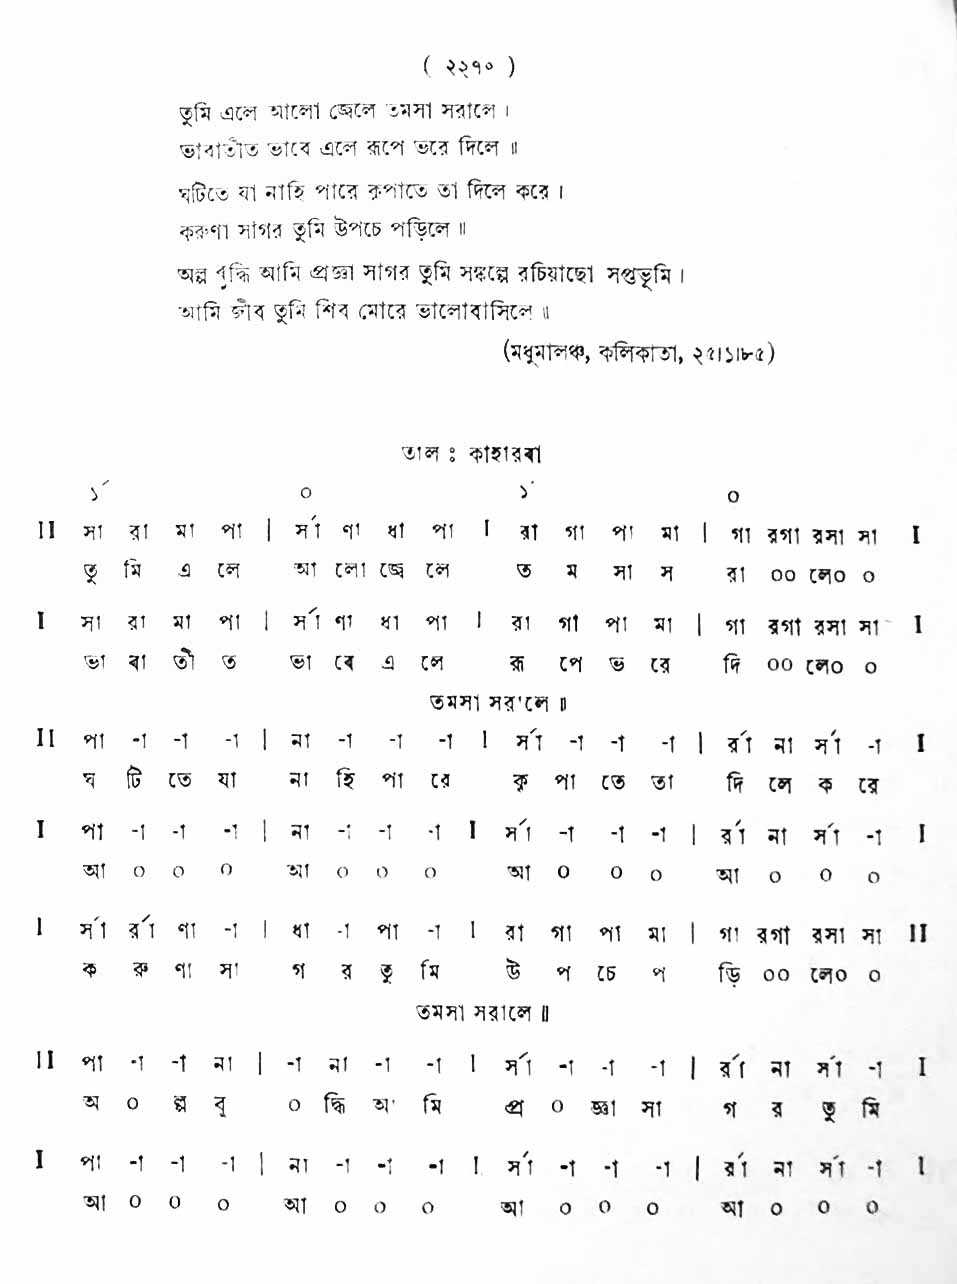 ( ২২৭০ )
তুমি এলে আলো জ্বেলে তমসা সরালে ।
ভাবাতীত ভাবে এলে রূপে ভরে দিলে ॥
ঘটিতে যা নাহি পারে কৃপাতে তা দিলে করে ।
করুণা সাগর তুমি উপচে পড়িলে ॥
অল্প বুদ্ধি আমি প্রজ্ঞা সাগর তুমি সঙ্কল্পে রচিয়াছো সপ্তভূমি ।
আমি জীব তুমি শিব মোরে ভালোবাসিলে ॥
(মধুমালঞ্চ, কলিকাতা, ২৫।১।৮৫)
তাল : কাহারবা
১´ ০ ১´ ০
II সা রা মা পা | র্সা ণা ধা পা I রা গা পা মা | গা রগা রসা সা I
তু মি এ লে আ লো জ্বে লে ত ম সা স রা ০০ লে০ ০
I সা রা মা পা | র্সা ণা ধা পা I রা গা পা মা | গা রগা রসা সা I
ভা বা তী ত ভা বে এ লে রূ পে ভ রে দি ০০ লে০ ০
তমসা সর'লে ॥
II পা -া -া -া | না -া -া -া I র্সা -া -া -া | র্রা না র্সা -া I
ঘ টি তে যা না হি পা রে কৃ পা তে তা দি লে ক রে
I পা -া -া -া | না -া -া -া I র্সা -া -া -া | র্রা না র্সা -া I
আ ০ ০ ০ আ ০ ০ ০ আ ০ ০ ০ আ ০ ০ ০
I র্সা র্রা ণা -া | ধা -া পা -া I রা গা পা মা | গা রগা রসা সা II
ক রু ণা সা গ র তু মি উ প চে প ড়ি ০০ লে০ ০
তমসা সরালে ॥
II পা -া -া না | -া না -া -া I র্সা -া -া -া | র্রা না র্সা -া I
অ ০ ল্প বু ০ দ্ধি আ মি প্র ০ জ্ঞা সা গ র তু মি
I পা -া -া -া | না -া -া -া I র্সা -া -া -া | র্রা না র্সা -া I
আ ০ ০ ০ আ ০ ০ ০ আ ০ ০ ০ আ ০ ০ ০